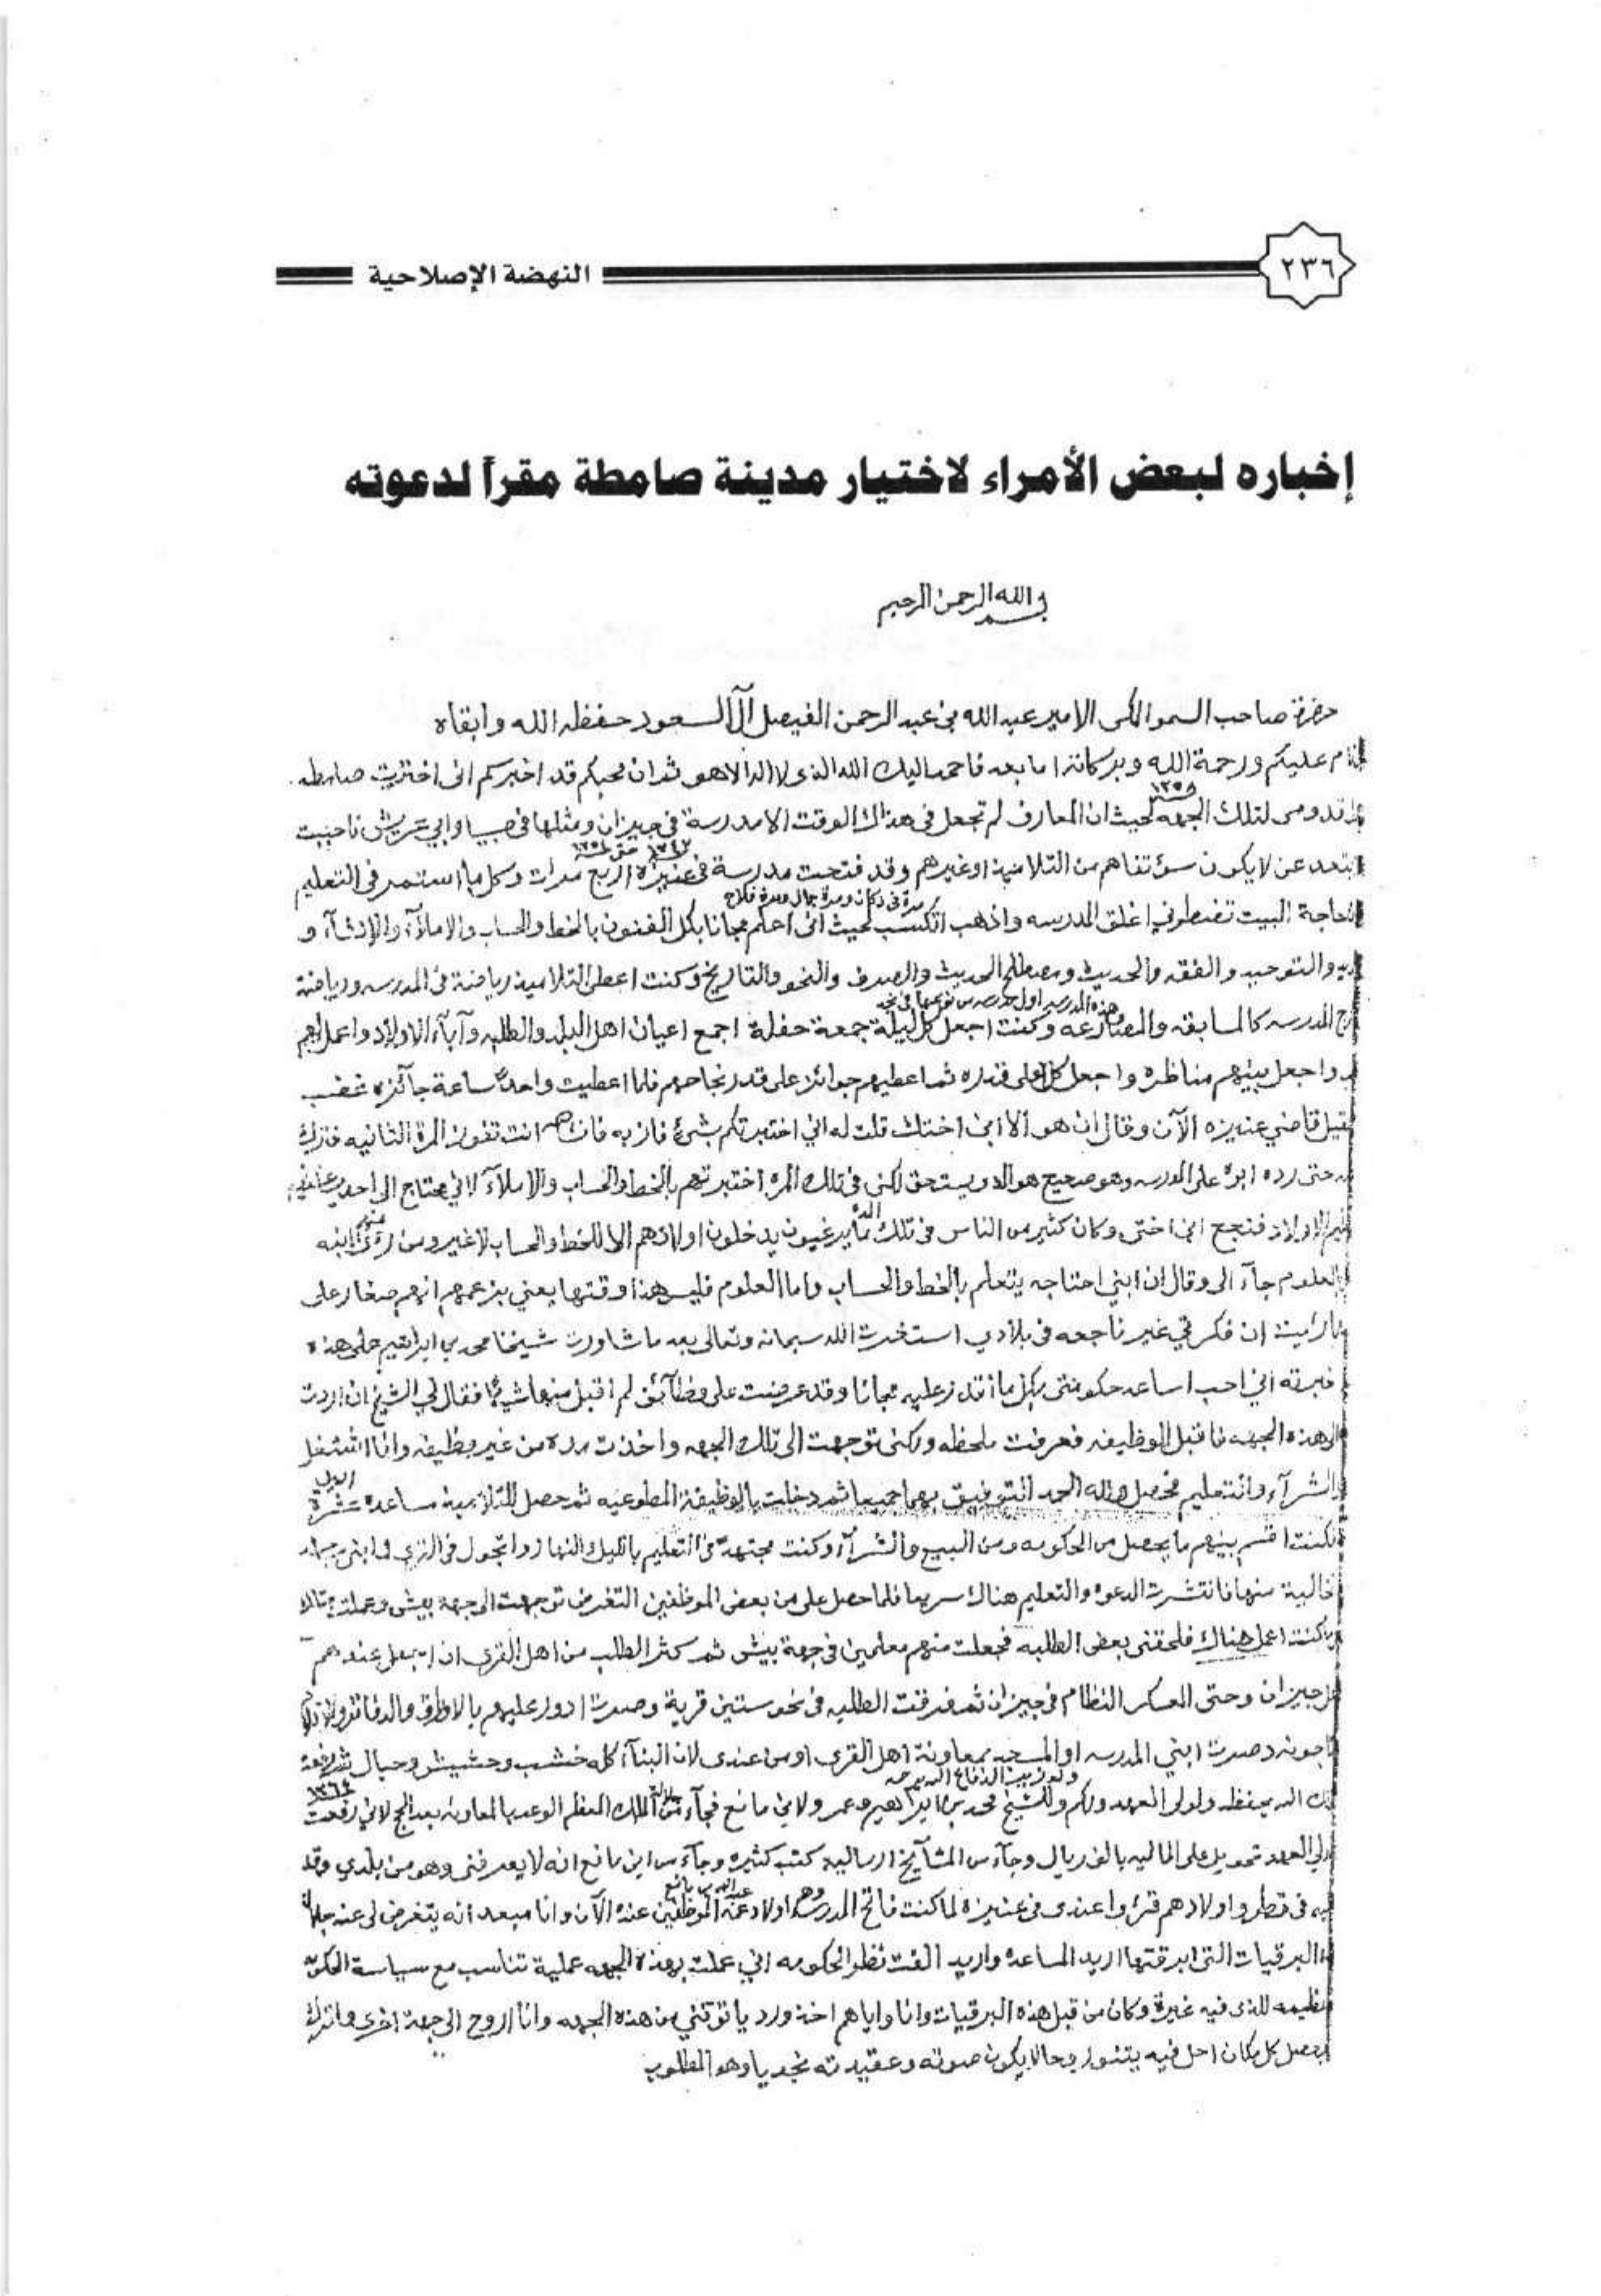 ٢٣٦
النهضة الإصلاحية
إخباره لبعض الأمراء لاختيار مدينة صامطة مقراً لدعوته
بسم الله الرحمن الرحيم
حضرة صاحب السمو الملكي الامير عبد الله بن عبد الرحمن الفيصل آل السعود حفظه الله وابقاه
عليكم ورحمة الله وبركاته اما بعد فاحمد اليك الله الذي لا اله الا هو ثم ان محبكم قد اخبركم اني اخترت صامطه
١٣٥٨
لتلك الجهه لحيث ان المعارف لم تجعل في هذاك الوقت الا مدرسة في جيزان ومثلها في صبيا وابي عريش فاحببت
١٣٤٧ حتى
ابتعد عن لا يكون سوء تفاهم من التلاميذ او غيرهم وقد فتحت مدرسة في عنيزه اربع مرات وكل ما استمر في التعليم
مرة في دكان ومرة جمال ومرة فلاح
حاجة البيت تضطرني اغلق المدرسه واذهب اتكسب لحيث اني اعلم مجانا بكل الفنون بالخط والحساب والاملآء والانشآء و
والتوحيد والفقه والحديث ومصطلح الحديث والصرف والنحو والتاريخ وكنت اعطي التلاميذ رياضة في المدرسه ورياضة
هذه المدرسه اول مدرسه من نوعها في نجد
المدرسه كالمسابقه والمصارعه وكنت اجعل كل ليلة جمعة حفلة اجمع اعيان اهل البلد والطلبه وآبآء الاولاد واعمل لهم
واجعل بينهم مناظره واجعل كل على قدره ثم اعطيهم جوائز على قدر نجاحهم فلما اعطيت واحدًا ساعة جآئزه غضب
قاضي عنيزه الآن وقال ان هو الا ابن اختك قلت له اني اختبرتكم بشيء فاز به فان انت تفوز المرة الثانيه فترك
حتى رده ابوه على المدرسه وهو صحيح هو الاول يستحق لكن في تلك المره اختبرتهم بالخط والحساب والاملآء لاني محتاج الى احد
الاولاد فنجح ابن اختي وكان كثير من الناس في تلك المده ما يرغبون يدخلون اولادهم الا للخط والحساب لا غير ومن
بالعلوم جآء الي وقال ان ابني احتاجه يتعلم بالخط والحساب واما العلوم فليس هذا وقتها يعني بزعمهم انهم صغار
رايت ان فكرتي غير ناجحه في بلادي استخرت الله سبحانه وتعالى بعد ما شاورت شيخنا محمد بن ابراهيم على هذه
اني احب اساعد حكومتي بكل ما اقدر عليه مجانا وقد عرضت علي وظآئف لم اقبل منها شيئًا فقال لي الشيخ ان اردت
هذه الجهه فاقبل الوظيفه فعرفت ملحظه ولكني توجهت الى تلك الجهه واخذت مده من غير وظيفه وانا اشتغل
والشرآء والتعليم فحصل ولله الحمد التوفيق بهما جميعا ثم دخلت بالوظيفة المطوعيه ثم حصل للتلاميذ مساعدة
فكنت اقسم بينهم ما يحصل من الحكومه ومن البيع والشرآء وكنت مجتهدًا في التعليم بالليل والنهار واتجول في القرى
خالية منها فانتشرت الدعوه والتعليم هناك سريعا فلما حصل علي من بعض الموظفين التغرض توجهت الى جهة بيش وعملت
كنت اعمل هناك فلحقني بعض الطلبه فجعلت منهم معلمين في جهة بيش ثم كثر الطلب من اهل القرى ان اجعل عندهم
جيزان وحتى العسكر النظام في جيزان ثم فرقت الطلبه في نحو ستين قرية وصرت ادور عليهم بالاوراق والدفاتر
وصرت ابني المدرسه او المسجد بمعاونة اهل القرى او من عندي لان البنآء كله خشب وحشيش وحبال
ولوزير الدفاع
١٣٦٤
الله يحفظه ولولي العهد ولكم وللشيخ محمد بن ابراهيم وعمر ولابن مانع فجآء من جلالة الملك المعظم الوعد بالمعاونه بعد الحج لاني رفعت
ولي العهد تحويل على الماليه بالف ريال وجآء من المشآيخ ارساليه كتب كثيره وجآء من ابن مانع انه لا يعرفني وهو من بلدي وقد
في قطر واولادهم قرؤا عندي في عنيزه لما كنت فاتح المدرسه وهم اولاد عمه الموظفين عنده الآن وانا مبعد انه يتغرض لي عند
البرقيات التي ابرقتها اريد المساعده واريد الفت نظر الحكومه اني عملت بهذه الجهه عملية تناسب مع سياسة
للذي فيه غيرة وكان من قبل هذه البرقيات وانا واياهم اخذ ورد يا توقفني من هذه الجهه وانا اروح الى جهة اخرى واترك
كل مكان احل فيه يتنور وحالا يكون صوته وعقيدته نجديا وهو المطلوب